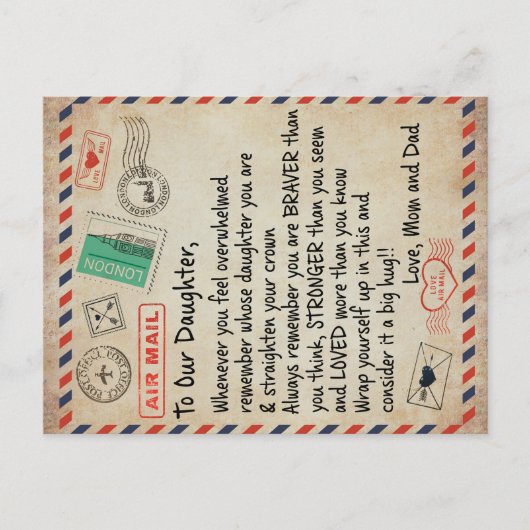 LOVE MAIL
LONDON LONDON LONDON
LONDON
AIR MAIL
POST OFFICE POST OFFICE
To Our Daughter,
Whenever you feel overwhelmed
remember whose daughter you are
& straighten your crown
Always remember you are BRAVER than
you think, STRONGER than you seem
and LOVED more than you know
Wrap yourself up in this and
consider it a big hug!!
Love, Mom and Dad
LOVE
AIR MAIL